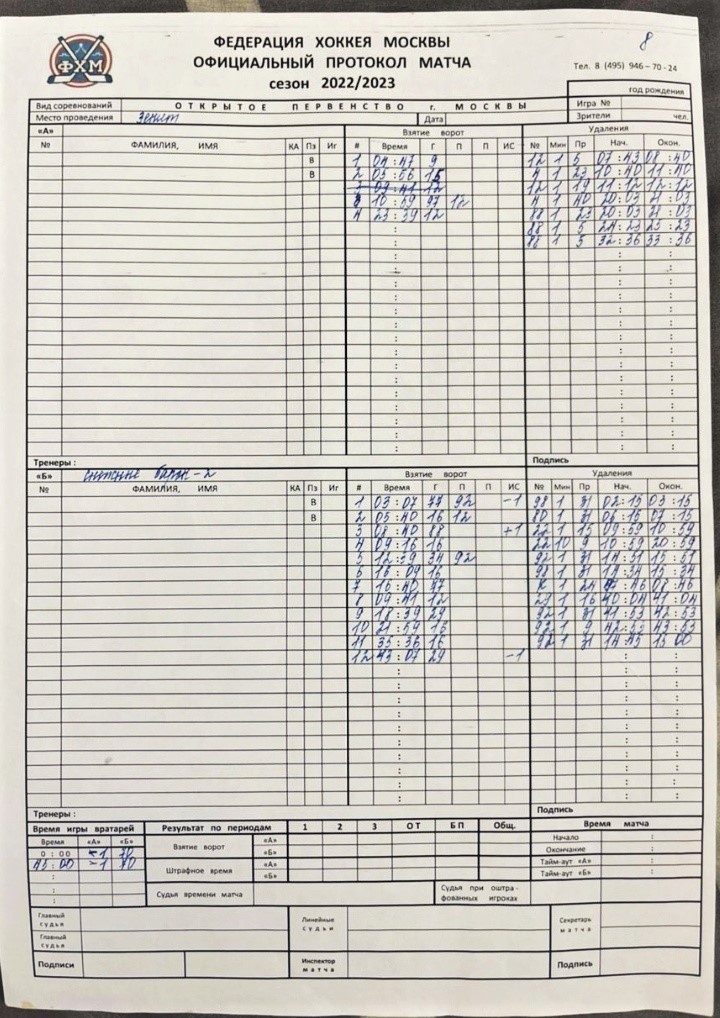 8
ФХМ
ФЕДЕРАЦИЯ ХОККЕЯ МОСКВЫ
ОФИЦИАЛЬНЫЙ ПРОТОКОЛ МАТЧА
сезон 2022/2023
Тел. 8 (495) 946-70-24
год рождения
Вид соревнований ОТКРЫТОЕ ПЕРВЕНСТВО г. МОСКВЫ Игра №
Место проведения Зенит Дата Зрители чел.
«А» Взятие ворот Удаления
№ ФАМИЛИЯ, ИМЯ КА Пз Иг # Время Г П П ИС № Мин Пр Нач. Окон.
В 1 04:47 9 12 1 5 07:43 08:40
В 2 05:06 15 4 1 23 10:40 11:40
3 09:41 12 12 1 19 11:12 12:12
3 10:59 97 12 4 1 40 20:03 21:03
4 23:39 12 88 1 23 20:03 21:03
88 1 5 24:23 25:23
88 1 5 32:36 33:36
Тренеры : Подпись
«Б» Взятие ворот Удаления
№ ФАМИЛИЯ, ИМЯ КА Пз Иг # Время Г П П ИС № Мин Пр Нач. Окон.
В 1 03:07 77 92 -1 98 1 31 02:15 03:15
В 2 05:40 16 12 80 1 31 06:15 07:15
3 08:40 88 +1 22 1 15 09:59 10:59
4 09:16 16 22 10 9 10:59 20:59
5 12:39 34 92 92 1 31 14:51 15:51
6 16:09 16 98 1 31 14:34 15:34
7 16:40 77 24 08:46
8 09:41 12 16 40:04 41:04
9 18:39 29 92 1 31 41:53 42:53
10 21:59 16 92 1 9 42:53 43:53
11 35:36 16 92 1 31 14:45 15:00
12 43:07 29 -1
Тренеры : Подпись
Время игры вратарей Результат по периодам 1 2 3 ОТ БП Общ. Время матча
Время «А» «Б» Взятие ворот «А» Начало :
0:00 1 70 «Б» Окончание :
45:00 1 70 Штрафное время «А» Тайм-аут «А» :
: «Б» Тайм-аут «Б» :
: Судья времени матча Судья при оштра-фованных игроках
Главный судья Линейные судьи Секретарь матча
Главный судья
Подписи Инспектор матча Подпись